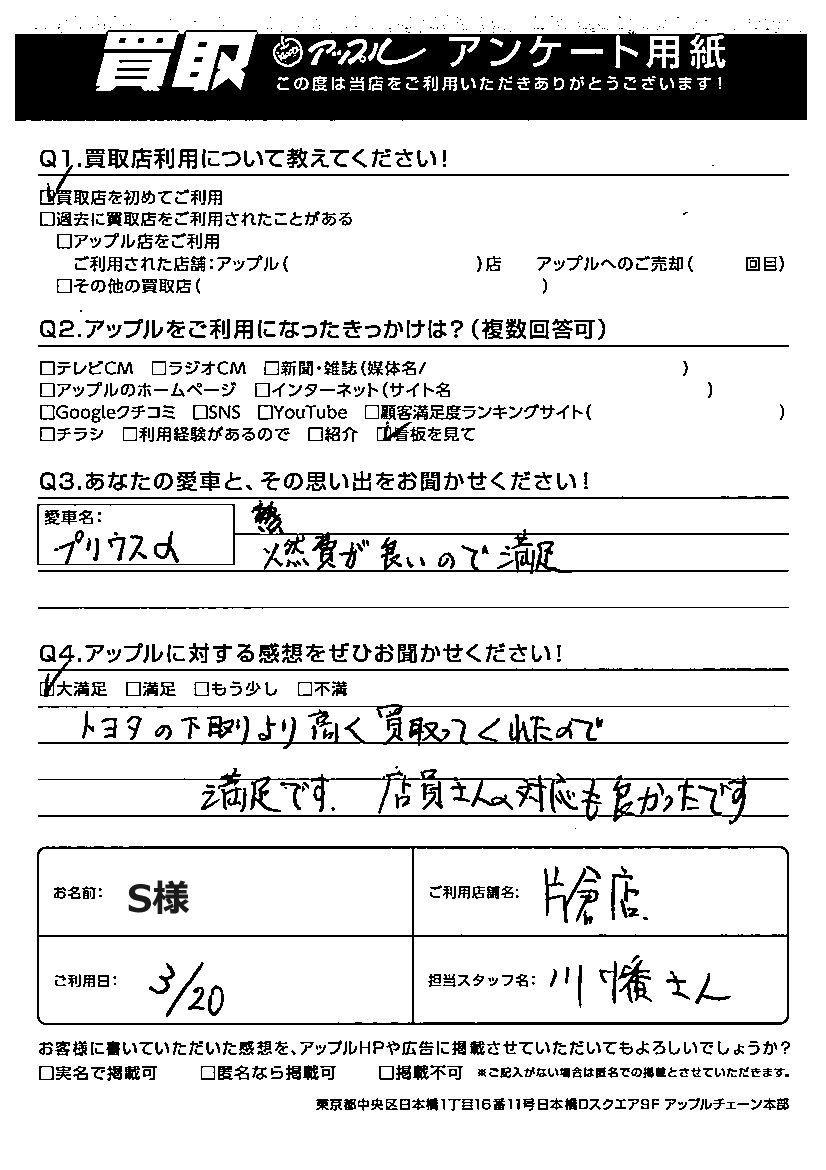 買取 アップル アンケート用紙
この度は当店をご利用いただきありがとうございます!
Q1.買取店利用について教えてください!
☑買取店を初めてご利用
□過去に買取店をご利用されたことがある
□アップル店をご利用
ご利用された店舗:アップル( )店 アップルへのご売却( 回目)
□その他の買取店( )
Q2.アップルをご利用になったきっかけは?(複数回答可)
□テレビCM □ラジオCM □新聞・雑誌(媒体名/ )
□アップルのホームページ □インターネット(サイト名 )
□Googleクチコミ □SNS □YouTube □顧客満足度ランキングサイト( )
□チラシ □利用経験があるので □紹介 ☑看板を見て
Q3.あなたの愛車と、その思い出をお聞かせください!
愛車名:
プリウスα 燃費が良いので満足
Q4.アップルに対する感想をぜひお聞かせください!
☑大満足 □満足 □もう少し □不満
トヨタの下取りより高く買取ってくれたので
満足です. 店員さんの対応も良かったです
お名前: S様 ご利用店舗名: 片倉店.
ご利用日: 3/20 担当スタッフ名: 川幡さん
お客様に書いていただいた感想を、アップルHPや広告に掲載させていただいてもよろしいでしょうか?
□実名で掲載可 □匿名なら掲載可 □掲載不可 ※ご記入がない場合は匿名での掲載とさせていただきます。
東京都中央区日本橋1丁目16番11号日本橋Dスクエア9F アップルチェーン本部